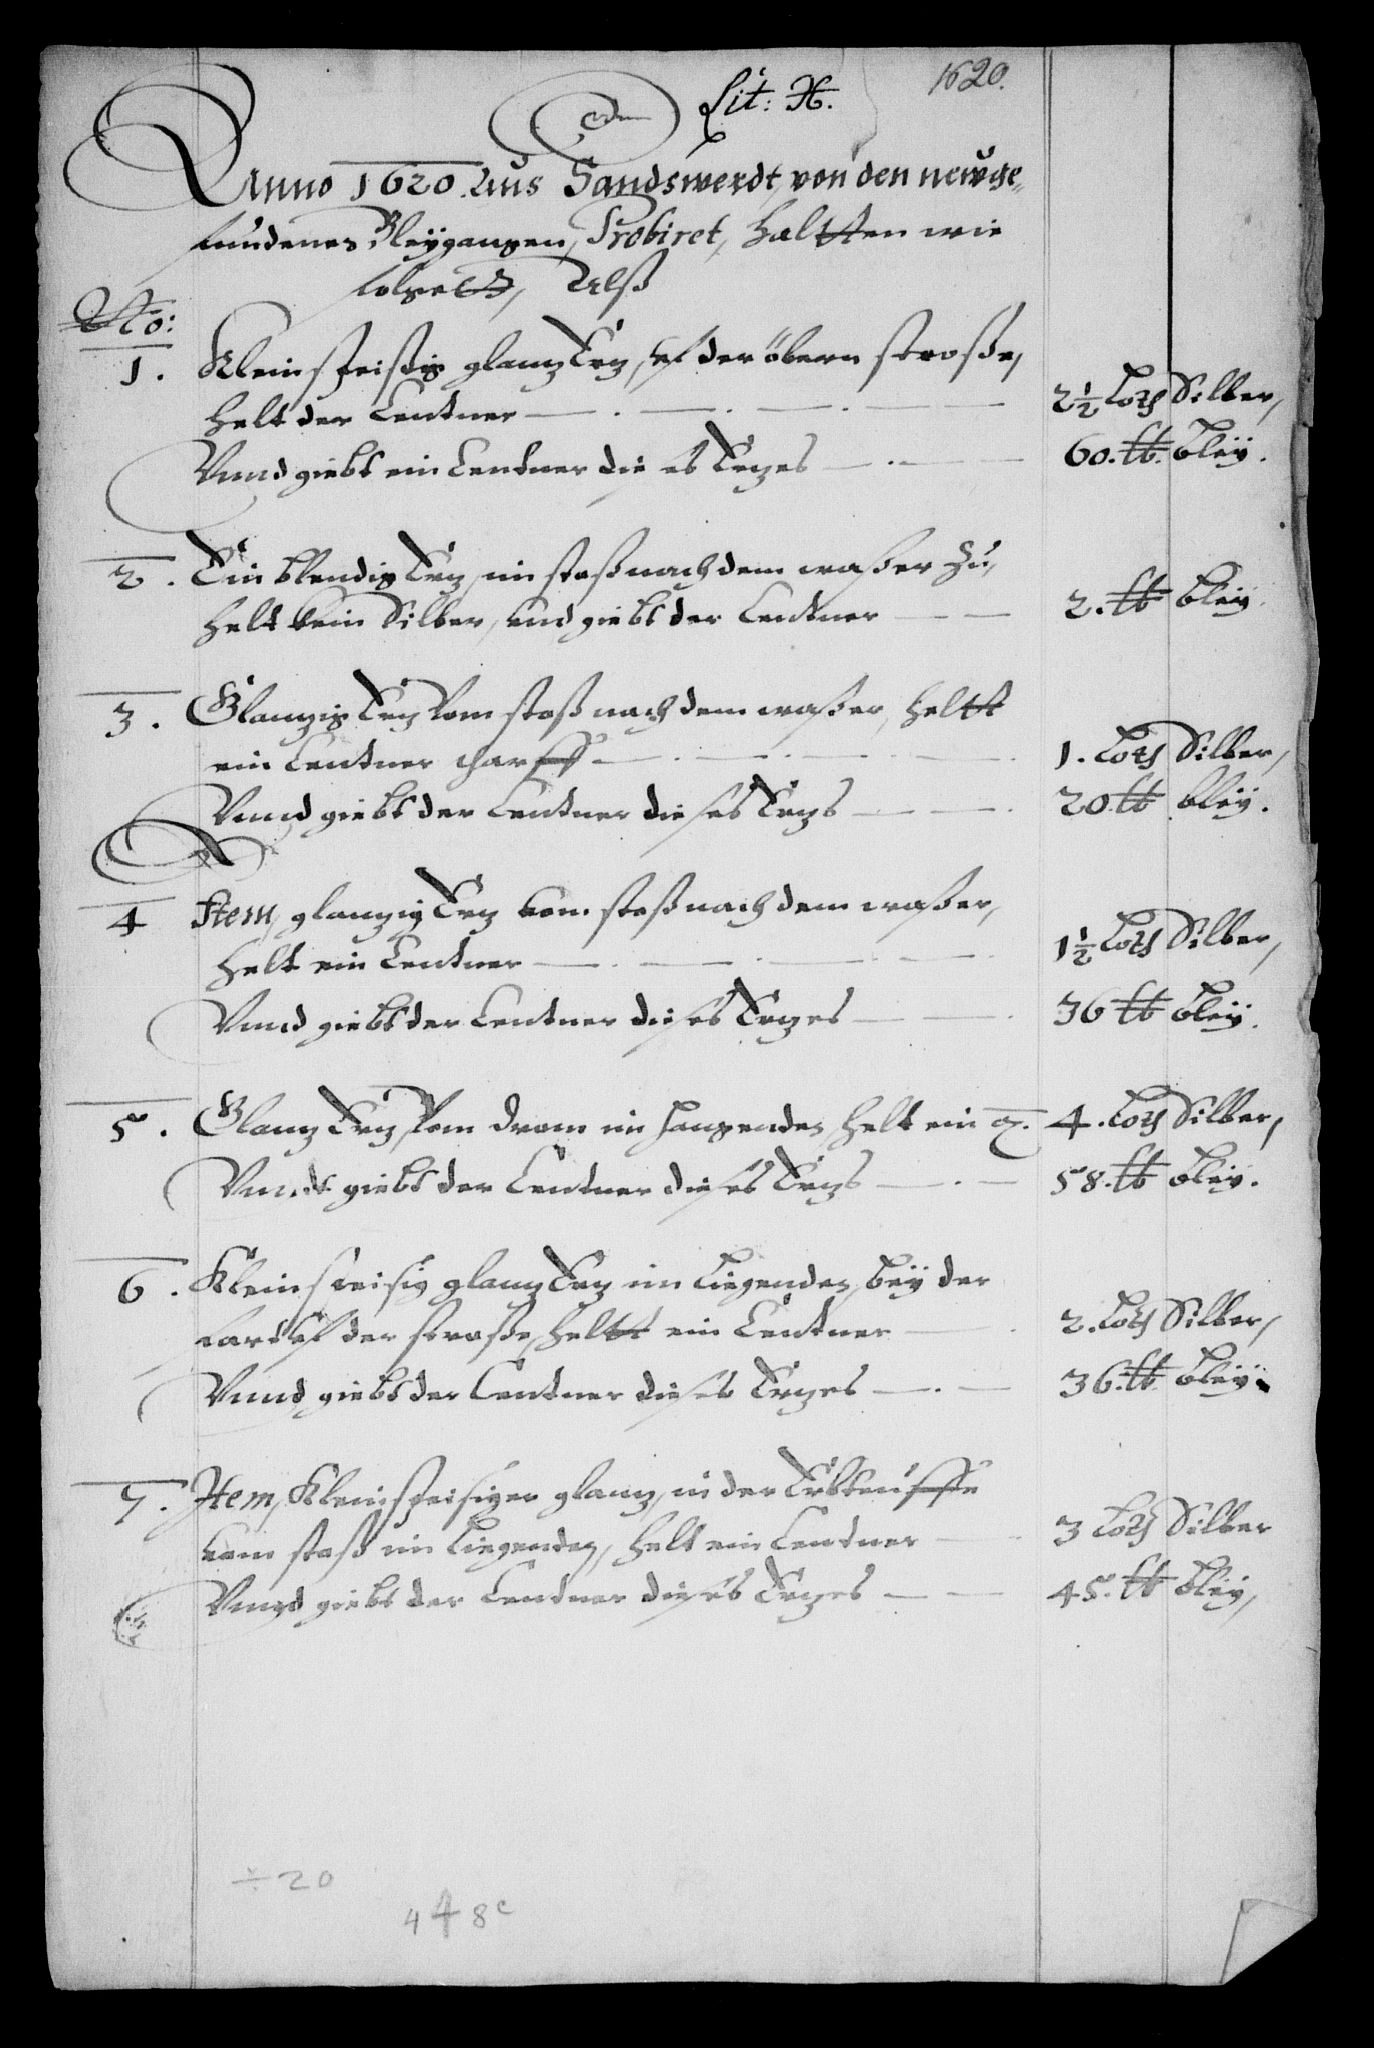 1620.
Lit: H.
Anno 1620. Aus Sandswerdt, von den newge-
fundenen Bleygangen, Probiret, Haltten wie
folgett, Alß
No:
1. Kleinspeißig glantz Ertz, uf der öbern strosse,
helt der Centner — . — . — . — 2½ Loth Silber,
Vnnd giebt ein Centner dises Ertzes — . — 60. ℔. bleÿ.
2. Ein blendig Ertz, im stoß nach dem waßer zu,
helt kein Silber, und giebt der Centner — — 2. ℔ bleÿ.
3. Glantzig Ertz vom stoß nach dem waßer, heltt
ein Centner scharff — . — . — . — 1. Loth Silber,
Vnnd giebt der Centner dieses Ertzs — — . 20. ℔ bleÿ.
4 Item, glantzig Ertz vom stoß nach dem waßer,
helt ein Centner — . — . — . — 1½ Loth Silber,
Vnnd giebt der Centner dieses Ertzes — — . 36 ℔ bleÿ.
5. Glantz Ertz, vom Drom im hangenden, helt ein 4. Loth Silber,
Vnndt giebt der Centner dieses Ertzs — . — 58. ℔ bleÿ.
6. Kleinspeisig glantz Ertz im Liegenden, beÿ der
uf der strosse, heltt ein Centner — . 2. Loth Silber,
Vnnd giebt der Centner dieses Ertzes — . — 36. ℔ bleÿ.
7. Item, Kleinspeisiger glantz, in der
vom stoß im Liegenden, helt ein Centner — 3 Loth Silber
Vnnd giebt der Centner dieses Ertzes — — 45. ℔ bleÿ,
÷ 20
4 4 8c